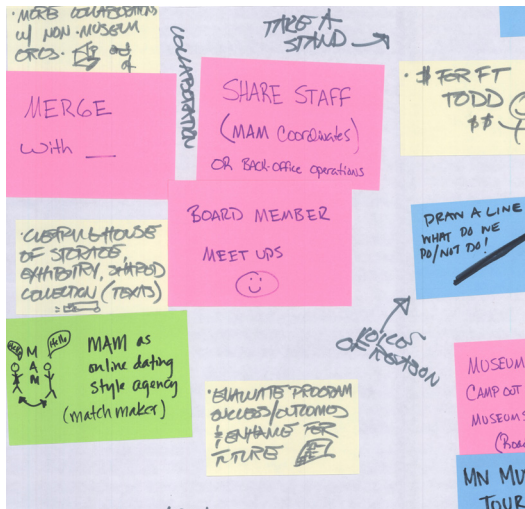 • MORE COLLABORATION
W/ NON-MUSEUM
ORGS.
COLLABORATION
TAKE A
STAND
MERGE
with __
SHARE STAFF
(MAM Coordinates)
OR BACK-Office operations
• $ FER FT
TODD
$$
BOARD MEMBER
MEET UPS
• CLEARINGHOUSE
OF STORAGE,
EXHIBITRY, SHARED
COLLECTION (TEXAS)
DRAW A LINE
WHAT DO WE
DO/NOT DO!
VOICE
OF REASON
Hello
Hello
MAM
MAM as
online dating
style agency
(match maker)
• EVALUATE PROGRAM
SUCCESS/OUTCOMES
& ENHANCE FER
FUTURE
MUSEUM
CAMP OUT
MUSEUMS
(Road
MN MU
TOUR